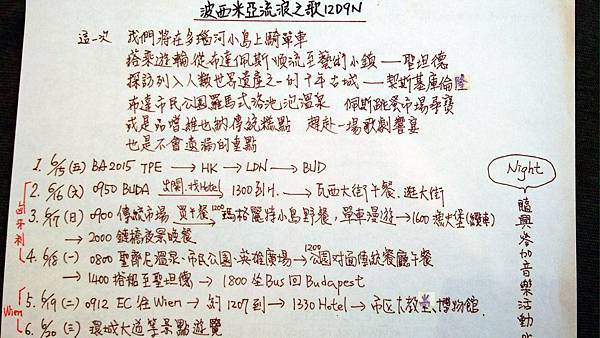 波西米亞流浪之歌12D9N
這一次 我們將在多瑙河小島上騎單車
搭乘遊輪從布達佩斯順流至藝術小鎮——聖坦德
探訪列入人類世界遺產之一的千年古城——契斯基庫倫隆
布達市民公園羅馬式浴池溫泉 佩斯跳蚤市場尋寶
或是品嚐維也納傳統糕點 趕赴一場歌劇饗宴
也是不會遺漏的重點
1. 6/15(五) BA2015 TPE → HK → LDN → BUD
2. 6/16(六) 0950 BUDA 出關,找Hotel → 1300到H. → 瓦西大街午餐.逛大街
3. 6/17(日) 0900 傳統市場 買午餐 → 1200 瑪格麗特小島野餐,單車漫遊 → 1600 漁夫堡(纜車)
→ 2000 鏈橋夜景晚餐
4. 6/18(一) 0800 聖齊尼溫泉、市民公園、英雄廣場 → 1200 公園對面傳統餐廳午餐
→ 1400 搭船至聖坦德 → 1800 坐Bus回Budapest
5. 6/19(二) 0912 EC往Wien → 約1207到 → 1330 Hotel → 市区大教堂、博物館
6. 6/20(三) 環城大道等景點遊覽
匈牙利
Wien
Night
隨興參加音樂活動